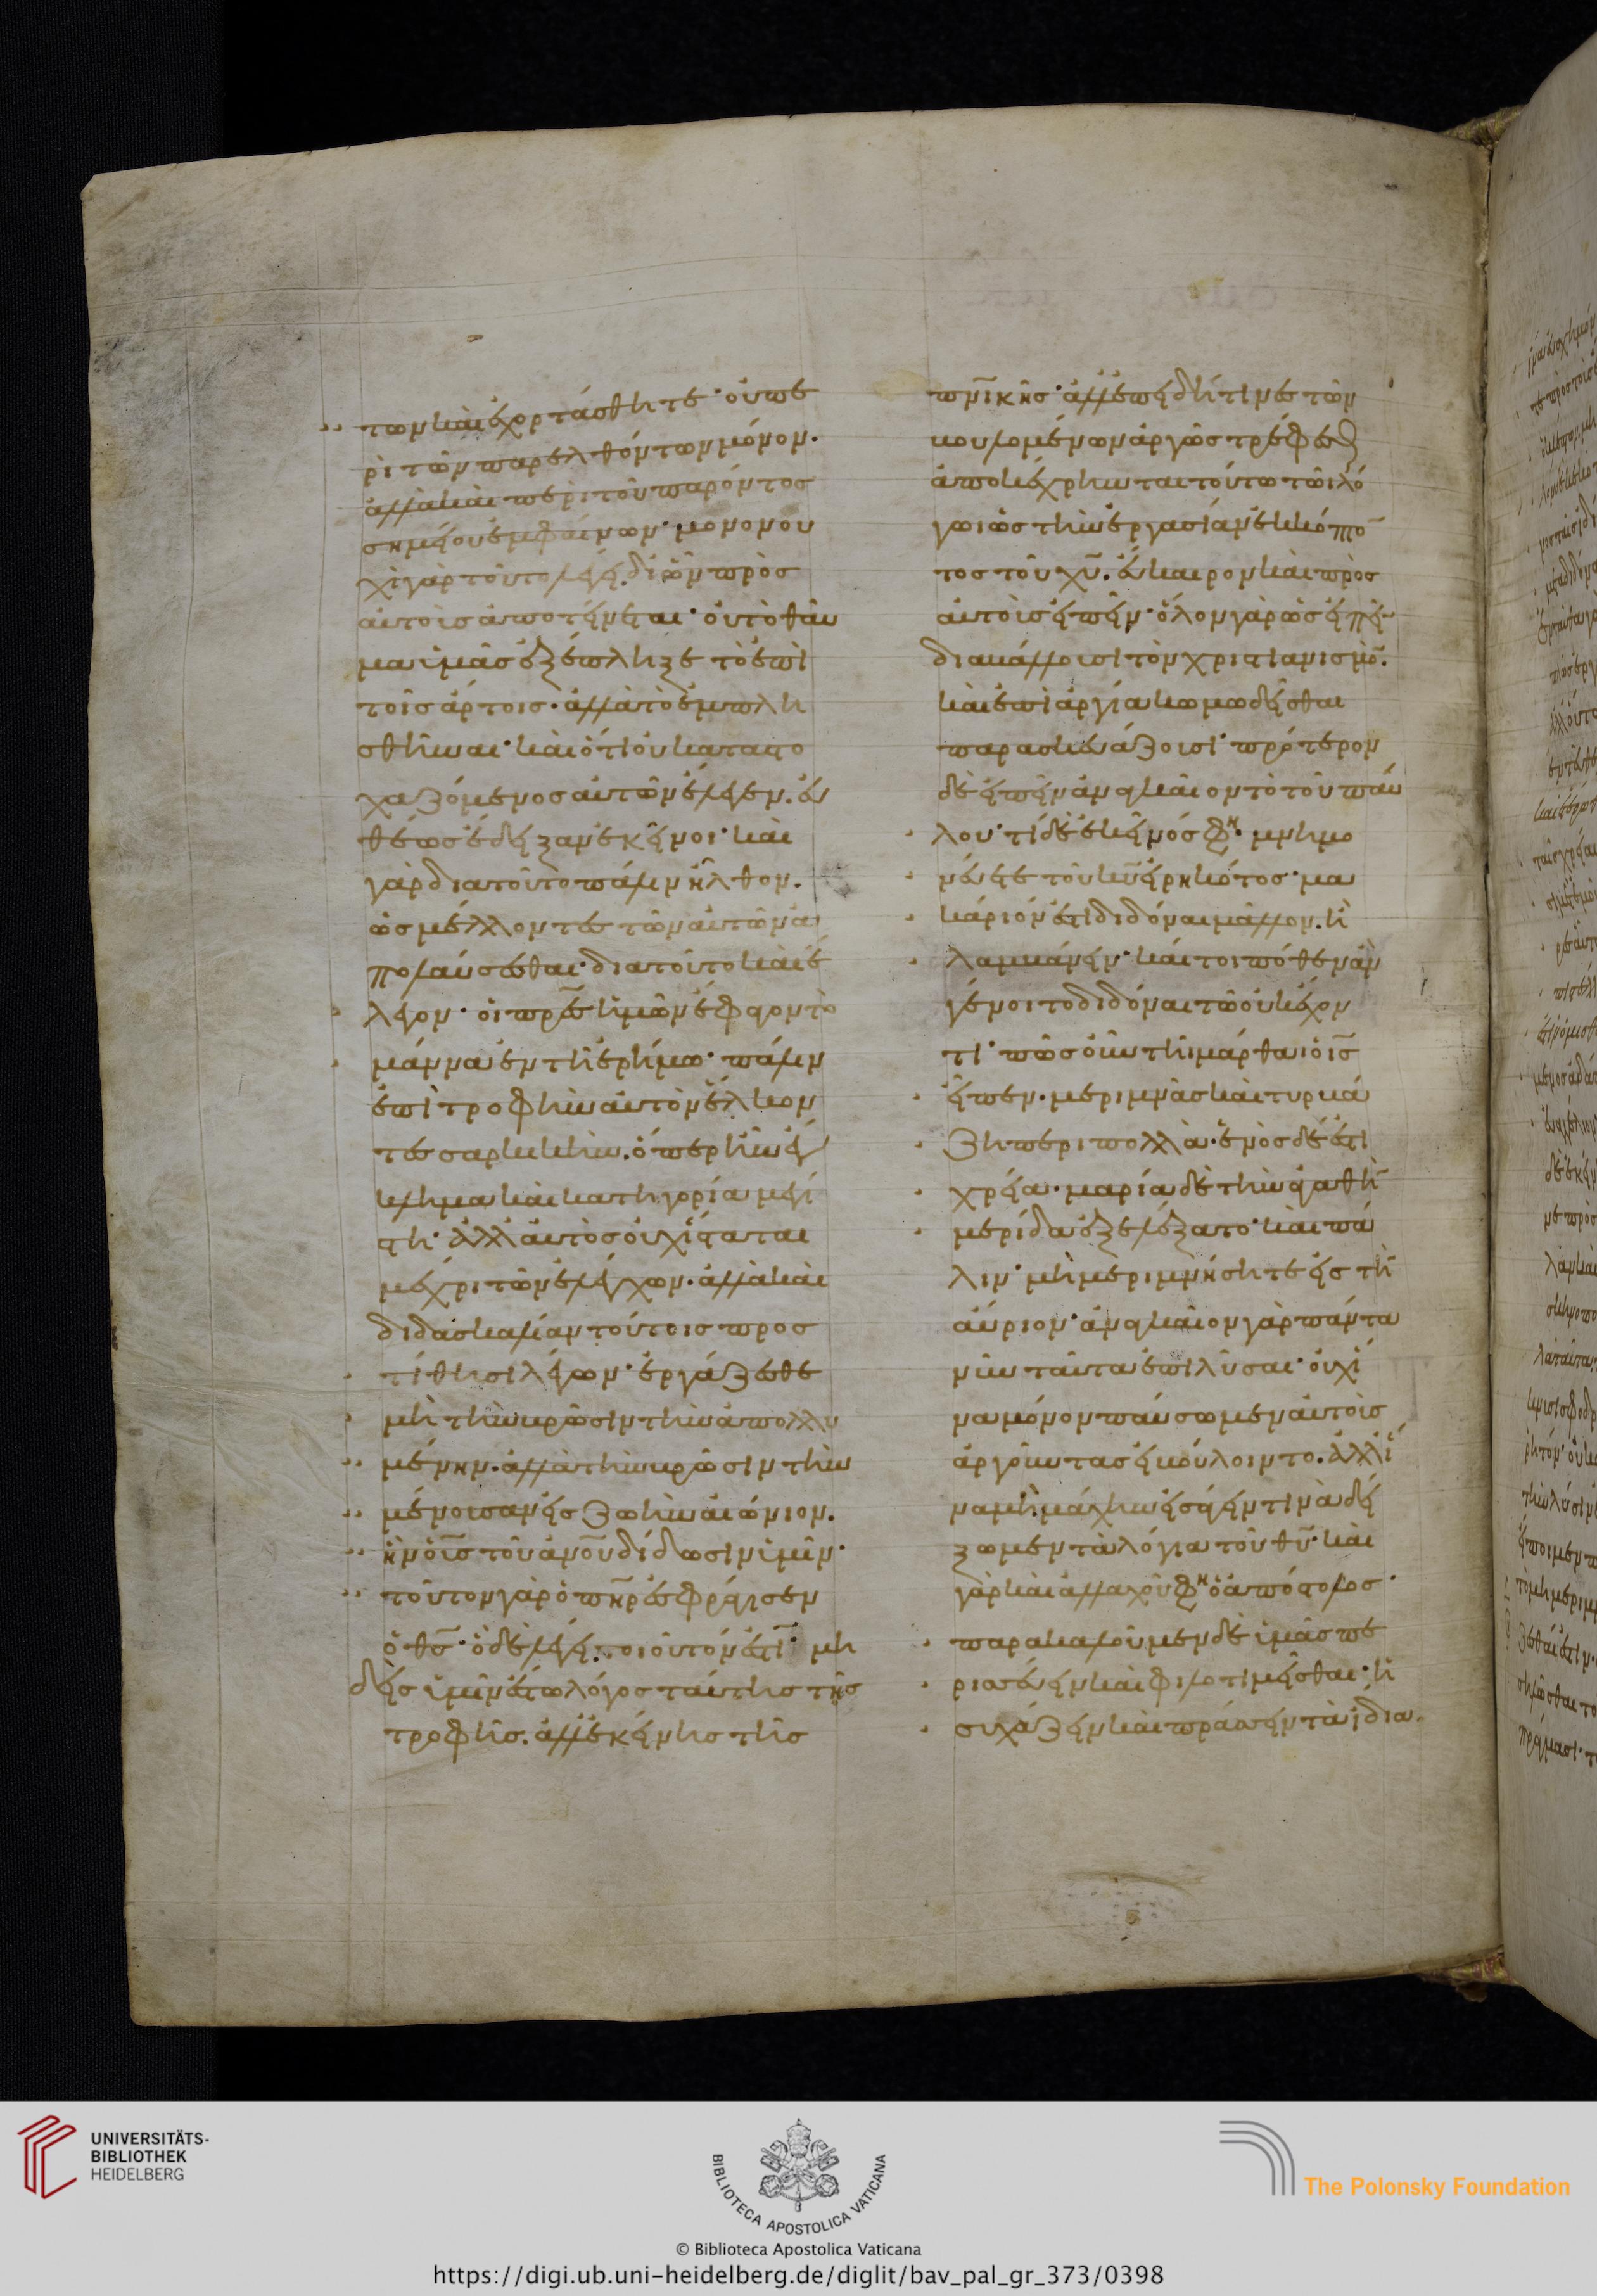 των καὶ ἐχορτάσθητε· οὐ πε
ρὶ τῶν παρελθόντων μόνον.
ἀλλὰ καὶ περὶ τοῦ παρόντος
σημείου ἐμφαίνων· μονονου
χὶ γὰρ τοῦτο λέγει. δι' ὧν πρὸς
αὐτοὺς ἀποτείνεται· οὐ τὸ θαῦ
μα ὑμᾶς ἐξέπληξε τὸ ἐπὶ
τοῖς ἄρτοις· ἀλλὰ τὸ ἐμπλη
σθῆναι· καὶ ὅτι οὐ καταστο
χαζόμενος αὐτῶν ἔλεγεν. εὐ
θέως ἔδειξαν ἐκεῖνοι· καὶ
γὰρ διατοῦτο πάλιν ἦλθον.
ὡς μέλλοντες τῶν αὐτῶν ἀ
πολαύσεσθαι· διατοῦτο καὶ ἔ
λεγον· οἱ πρ̅ε̅ς ἡμῶν ἔφαγον τὸ
μάννα ἐν τῆ ἐρήμω· πάλιν
ἐπὶ τροφὴν αὐτὸν ἕλκον
τες σαρκικήν. ὅπερ ἦν ἔγ
κλημα καὶ κατηγορία μεγί
στη· ἀλλ' αὐτὸς οὐχ ἵσταται
μέχρι τῶν ἐλέγχων. ἀλλὰ καὶ
διδασκαλίαν τούτοις προσ
τίθησι λέγων· ἐργάζεσθε
μὴ τὴν βρῶσιν τὴν ἀπολλυ
μένην. ἀλλὰ τὴν βρῶσιν τὴν
μένουσαν εἰς ζωὴν αἰώνιον.
ἣν ὁ υ̅ς̅ τοῦ ἀν̅ο̅υ̅ δίδωσιν ὑμῖν·
τοῦτον γὰρ ὁ π̅η̅ρ̅ ἐσφράγισεν
ὁ θ̅ς̅· ὃ δὲ λέγει τοιοῦτόν ἐστι· μη
δεὶς ὑμῖν ἔστω λόγος ταύτης τῆς
τροφῆς. ἀλλ' ἐκείνης τῆς
π̅ν̅ικῆς· ἀλλ' ἐπειδή τινες τῶν
βουλομένων ἀργῶς τρέφεσθ
ἀποκέχρηνται τούτω τῶ λό
γω ὡς τὴν ἐργασίαν ἐκκόπτο
τος τοῦ χ̅υ̅. εὔκαιρον καὶ πρὸς
αὐτοὺς εἰπεῖν· ὅλον γὰρ ὡς εἰπεῖν
διαβάλλουσι τὸν χριστιανισμό̅.
καὶ ἐπὶ ἀργία κωμωδεῖσθαι
παρασκευάζουσι· πρότερον
δὲ εἰπεῖν ἀναγκαῖον τὸ τοῦ παύ
λου· τί δὲ ἐκεῖνός φη· μνημο
νεύετε τοῦ κ̅υ̅ εἰρηκότος· μα
κάριόν ἐστι διδόναι μᾶλλον. ἢ
λαμβάνειν· καίτοι πόθεν ἂν
γένοιτο διδόναι τῶ οὐκ ἔχον
τι· πῶς οὖν τῆ μάρθα ὁ ι̅ς̅
εἶπεν. μεριμνᾶς καὶ τυρβά
ζη περὶ πολλὰ· ἑνὸς δέ ἐστι
χρεία. μαρία δὲ τὴν ἀγαθὴ̅
μερίδα ἐξελέξατο· καὶ πά
λιν· μὴ μεριμνήσητε εἰς τὴ̅
αὔριον· ἀναγκαῖον γὰρ πάντα
νῦν ταῦτα ἐπιλῦσαι· οὐχ ἵ
να μόνον παύσωμεν αὐτοὺς
ἀργοῦντας εἰ βούλοιντο. ἀλλ' ἵ
να μὴ μάχην εἰσάγειν τινὰ δεί
ξωμεν τὰ λόγια τοῦ θ̅υ̅· καὶ
γὰρ καὶ ἀλλαχοῦ φη ὁ ἀπόστολος·
παρακαλοῦμεν δὲ ὑμᾶς πε
ρισσεύειν καὶ φιλοτιμεῖσθαι· ἡ
συχάζειν καὶ πράσσειν τὰ ἴδια.
UNIVERSITÄTS-
BIBLIOTHEK
HEIDELBERG
BIBLIOTECA APOSTOLICA VATICANA
The Polonsky Foundation
© Biblioteca Apostolica Vaticana
https://digi.ub.uni-heidelberg.de/diglit/bav_pal_gr_373/0398